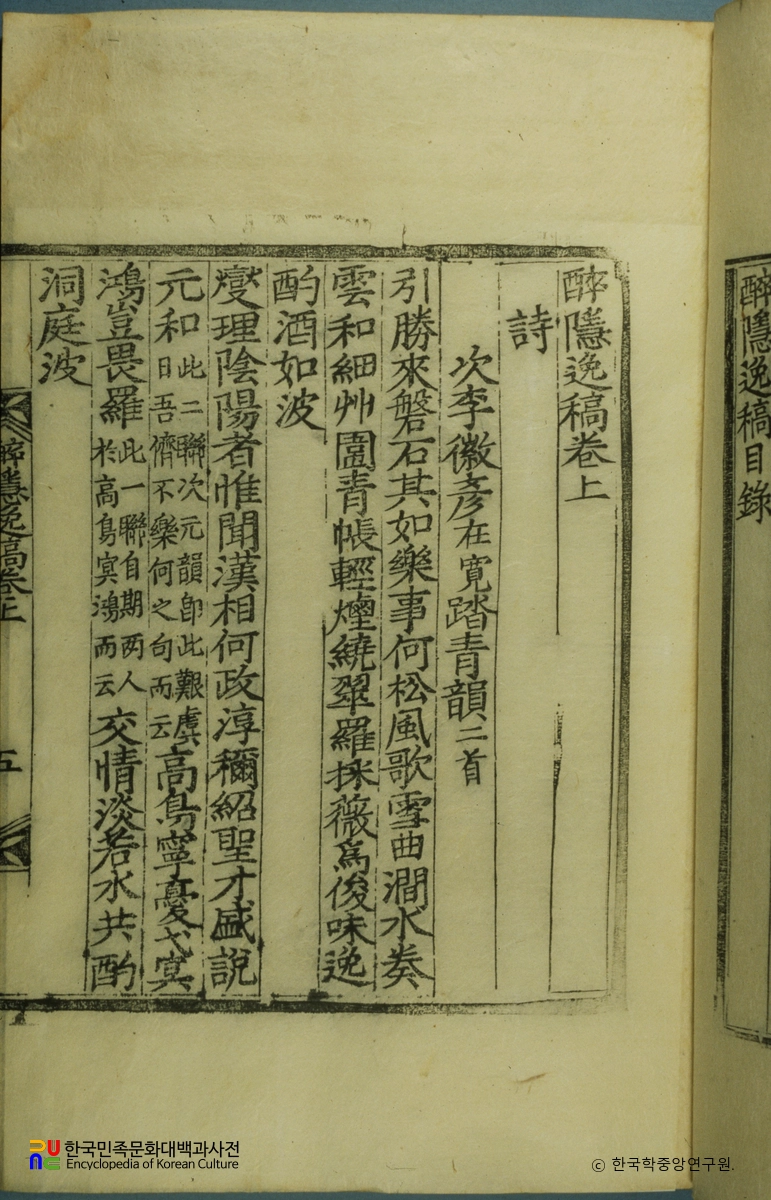 醉隱逸稿目錄
醉隱逸稿卷上
詩
次李徽彦在寬踏青韻二首
引勝來磐石其如樂事何松風歌雪曲澗水奏
雲和細艸圍青帳輕煙繞翠羅採薇爲俊味逸
酌酒如波
燮理陰陽者惟聞漢相何政淳穪紹聖才盛說
元和此二聯次元韻卽此艱虞日吾儕不樂何之句而云高鳥寧憂弋冥
鴻豈畏羅此一聯自期两人於高鳥冥鴻而云交情淡若水共酌
洞庭波
醉隱逸稿卷上
五
한국민족문화대백과사전
Encyclopedia of Korean Culture
ⓒ 한국학중앙연구원.